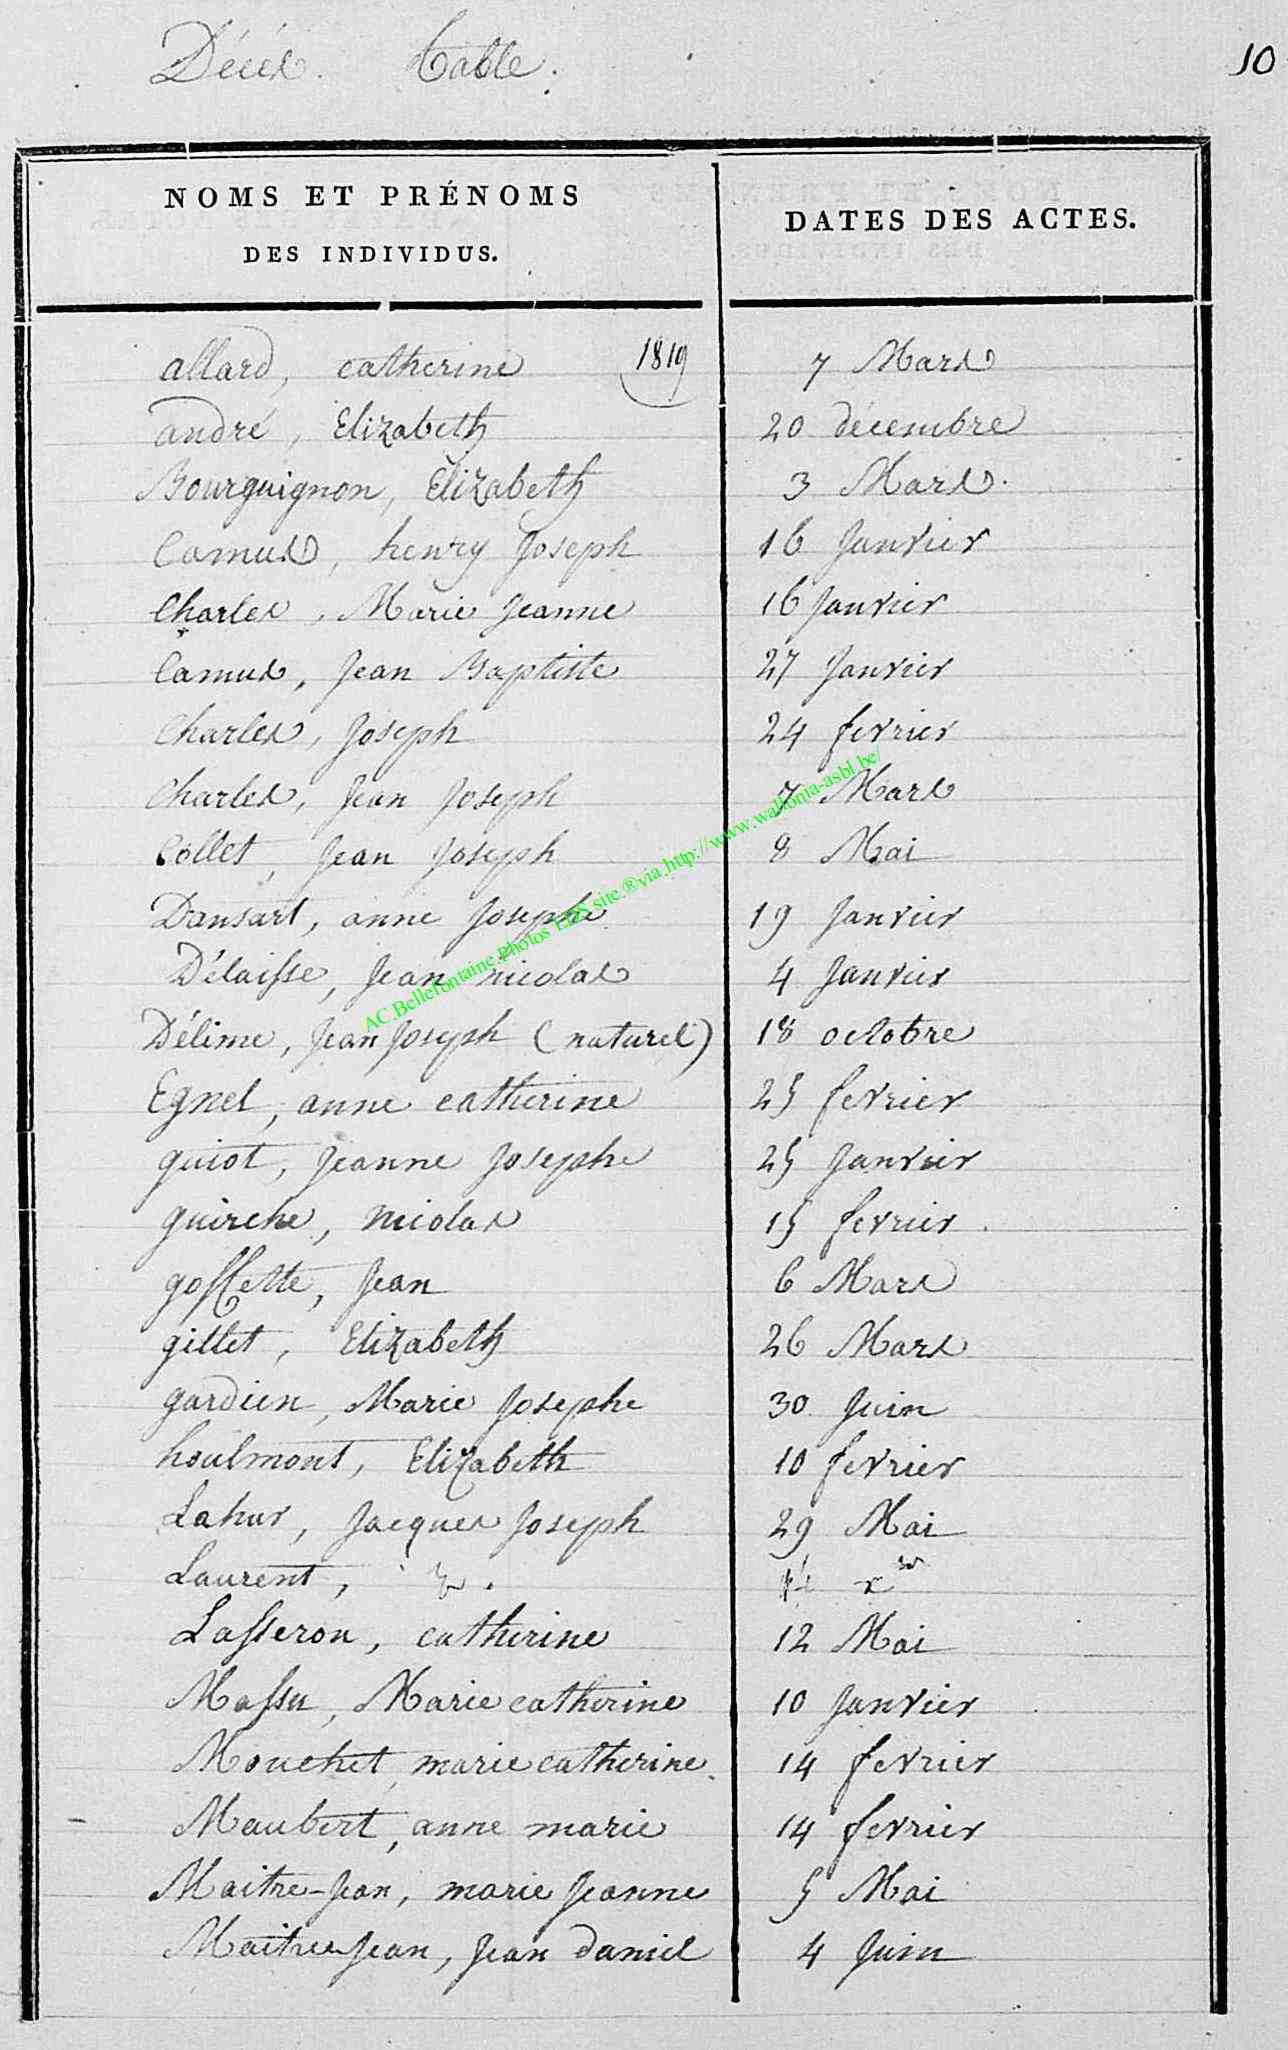 Décès. Table.
10
NOMS ET PRÉNOMS
DES INDIVIDUS.
DATES DES ACTES.
allard, catherine 1819 7 Mars
andré, Elizabeth 20 décembre
Bourguignon, Elizabeth 3 Mars.
Camus, henry Joseph 16 Janvier
Charles, Marie Jeanne 16 Janvier
Camus, Jean Baptiste 27 Janvier
Charles, Joseph 24 fevrier
Charles, Jean Joseph 7 Mars
Collet, Jean Joseph 8 Mai
Dansart, anne Josephe 19 Janvier
Délaisse, Jean nicolas 4 Janvier
Délime, Jean Joseph (naturel) 18 octobre
Egnel, anne catherine 25 fevrier
guiot, Jeanne Josephe 25 Janvier
guirche, nicolas 15 fevrier
goffette, Jean 6 Mars
gillet, Elizabeth 26 Mars
gardien, Marie Josephe 30 Juin
houlmont, Elizabeth 10 fevrier
Lahur, Jacques Joseph 29 Mai
Laurent,
Lasseron, catherine 12 Mai
Massu, Marie catherine 10 Janvier
Mouchet, marie catherine. 14 fevrier
Maubert, anne marie 14 fevrier
Maitre-Jean, marie Jeanne 5 Mai
Maitre-Jean, Jean daniel 4 Juin
AC.Bellefontaine.Photos EDS site.®via http://www.wallonia-asbl.be/